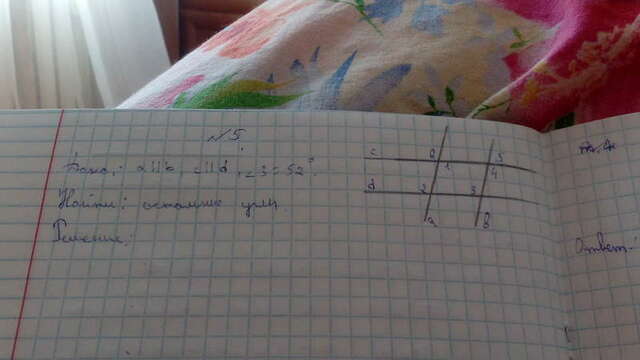 N5.
Дано: a||b, c||d, ∠3=52°.
Найти: остальные углы.
Решение:
c
6
5
1
4
d
2
3
a
b
Ответ: